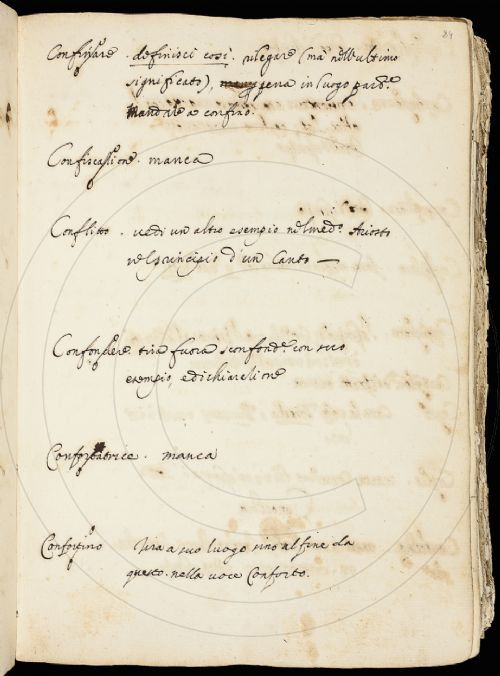 84
Confinare . definisci così . rilegare (mà nell'ultimo
significato), pena in luogo part.e
Mandare a confino.
Confiscassione . manca
Conflitto . vedi un altro esempio nel med.o Ariosto
nel principio d'un Canto —
Confondere tira fuora sconfond.e con suo
esempio, e dichiarlione
Confortatrice . manca
Confortino Tira a suo luogo sino al fine da
questo . nella voce Conforto .